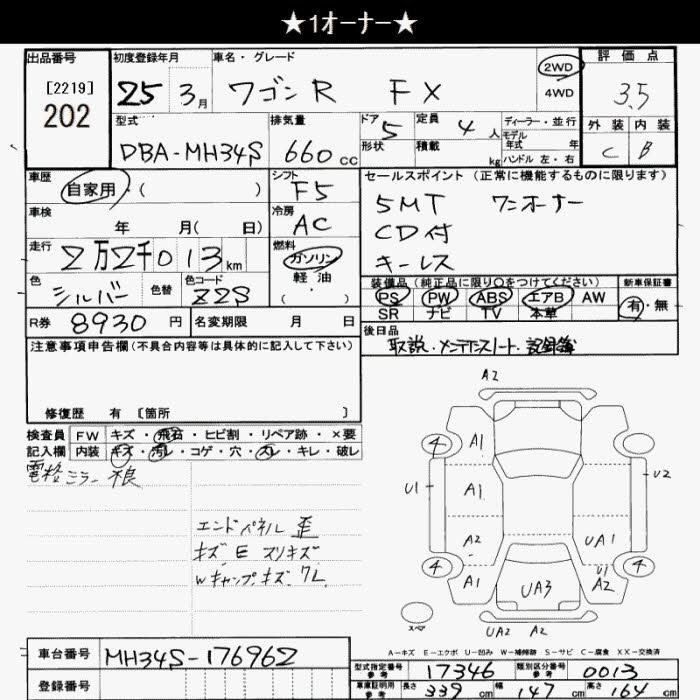 ★1オーナー★
出品番号
[2219]
202
初度登録年月
25 3月
車名・グレード
ワゴンR FX
2WD
4WD
評価点
3.5
外装 内装
C B
型式
DBA-MH34S
排気量
660 CC
ドア 5
形状
定員 4 人
積載 kg
ディーラー・並行
モデル
年式 年
ハンドル 左・右
車歴
自家用・( )
シフト
F5
セールスポイント (正常に機能するものに限ります)
5MT ワンオーナー
CD付
キーレス
車検
年 月( 日)
冷房
AC
走行
2万2千013km
燃料
ガソリン
軽油
( )
色
シルバー
色替
色コード
Z2S
装備品(純正品に限り○をつけてください)
PS PW ABS エアB AW
SR ナビ TV 本革
新車保証書
有・無
R券 8930 円
名変期限 月 日
後日品
取説・メンテナンスノート・記録簿
注意事項申告欄(不具合内容等は具体的に記入して下さい)
修復歴 有 [箇所 ]
検査員
記入欄
FW キズ・飛石・ヒビ割・リペア跡・×要
内装 キズ・汚レ・コゲ・穴・スレ・キレ・破レ
電格ミラー 根
エンドパネル 歪
キズ E スリキズ
Wキャップキズ ワレ
A2
4 A1
U1 A1 U2
A2 UA1
4 A1 UA3 U1 A2 4
スペア
UA2 A2
A-キズ E-エクボ U-凹み W-補修跡 S-サビ C-腐食 XX-交換済
車台番号 MH34S-176962
登録番号
型式指定番号
参考
17346
類別区分番号
参考
0013
車庫証明用
参考
長さ 339 cm 幅 147 cm 高さ 164 cm